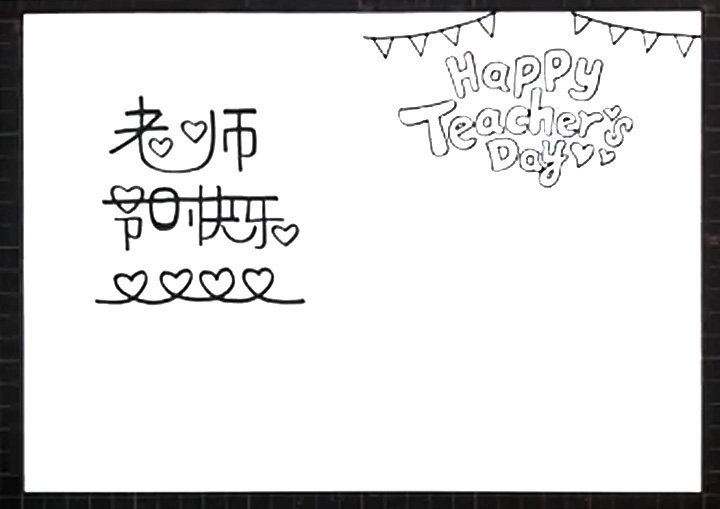 老师
节日快乐
Happy
Teacher's
Day